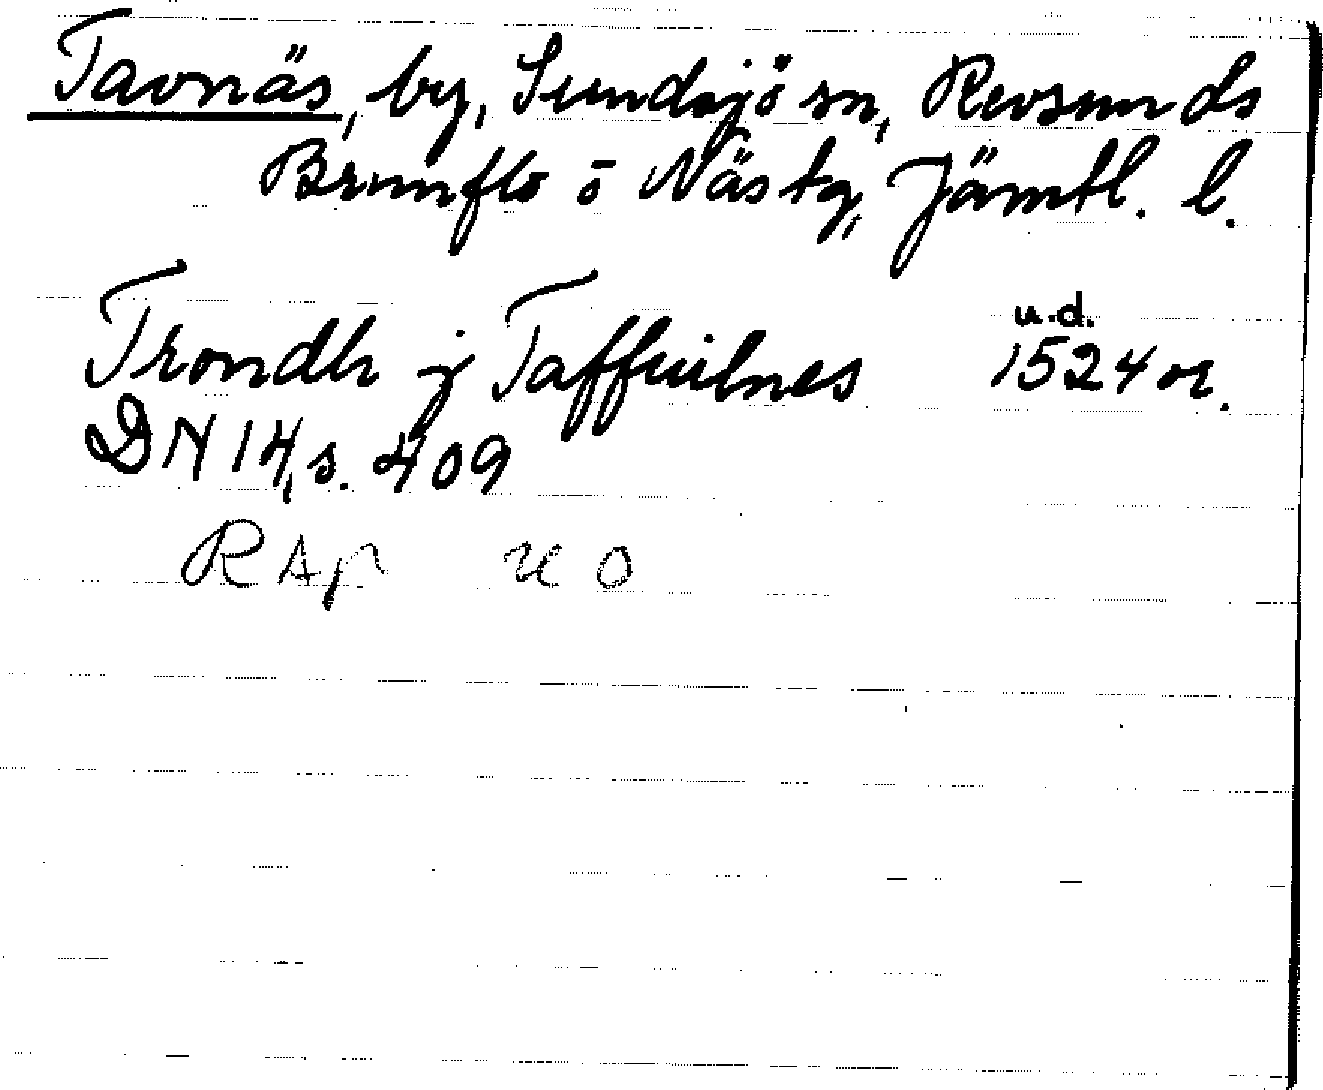 Tavnäs, by, Sundsjö sn, Revsunds
Brunflo o Näs tg, Jämtl. l.
u.d.
Trondh j Taffuilnes 1524 or.
DN 14, s. 409
RAp NO